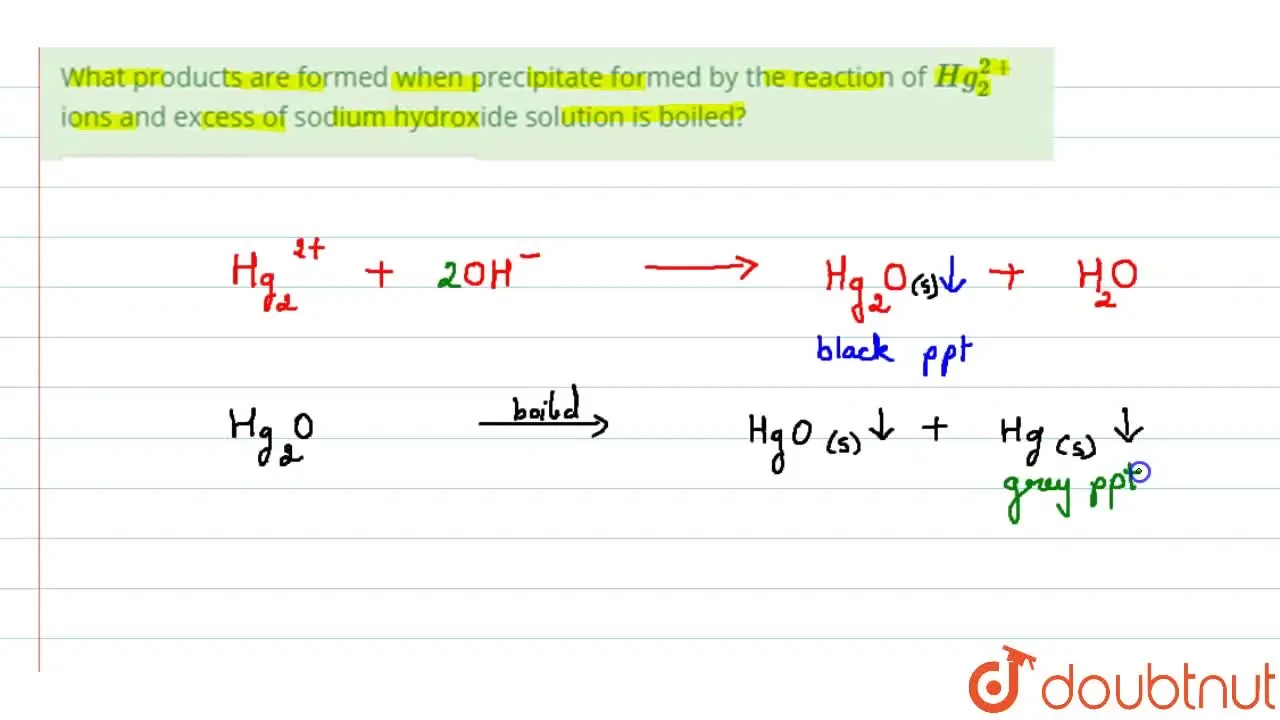 What products are formed when precipitate formed by the reaction of $Hg_2^{2+}$
ions and excess of sodium hydroxide solution is boiled?
Hg₂²⁺ + 2OH⁻ ⟶ Hg₂O(s)↓ + H₂O
black ppt
Hg₂O boiled⟶ HgO(s)↓ + Hg(s)↓
grey ppt
doubtnut